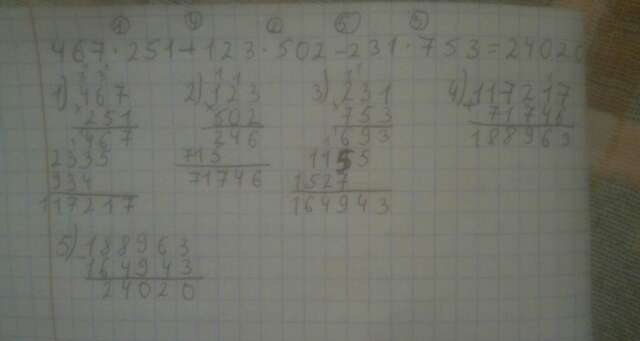 1 4 2 5 3
467 · 251 + 123 · 502 - 231 · 753 = 24020
1) 467
× 251
467
2335
934
117217
2) 123
× 502
246
715
71746
3) 231
× 753
693
1155
1527
164943
4) 117217
+ 71746
188963
5) 188963
- 164943
24020